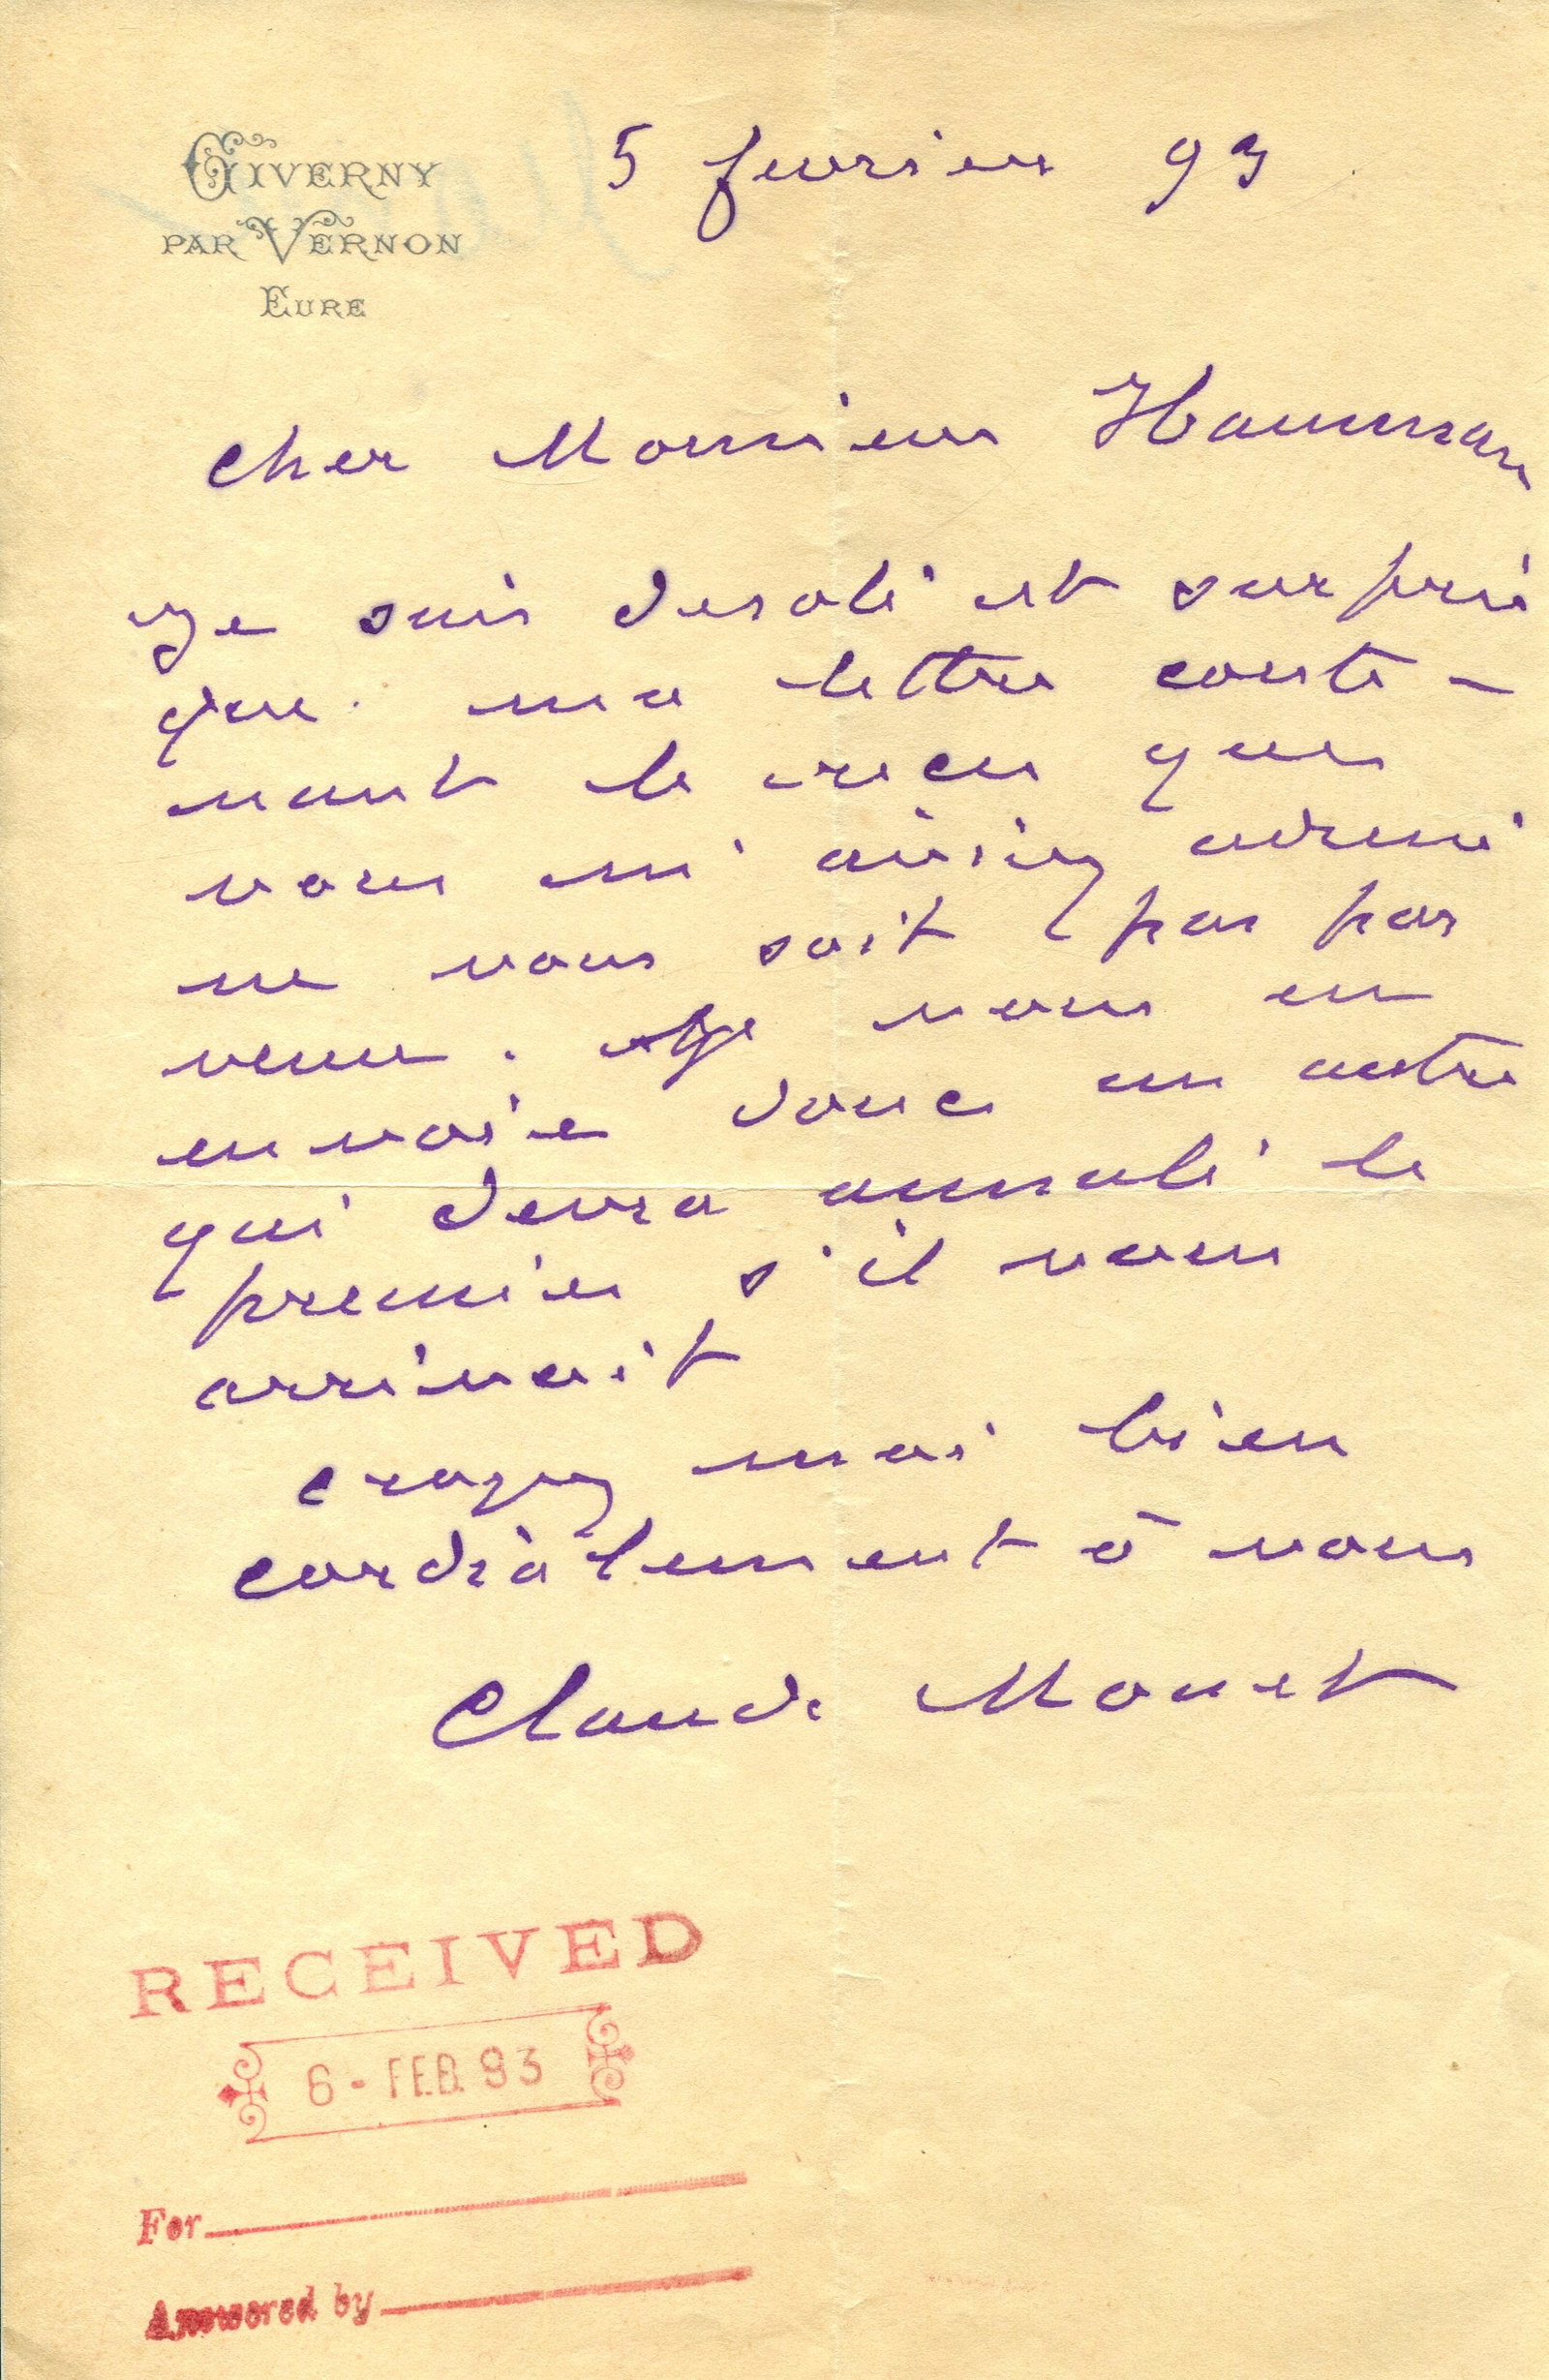 GIVERNY
PAR VERNON
EURE
5 fevrier 93
Cher Monsieur Hamman
Je suis desolé et surpris
que ma lettre conte-
nant le recu que
vous m'aviez adressé
ne vous soit pas par
venue. Je vous en
envoie donc un autre
qui devra annulé le
premier s'il vous
arrivait
croyez moi bien
cordialement à vous
Claude Monet
RECEIVED
6 - FEB. 93
For
Answered by